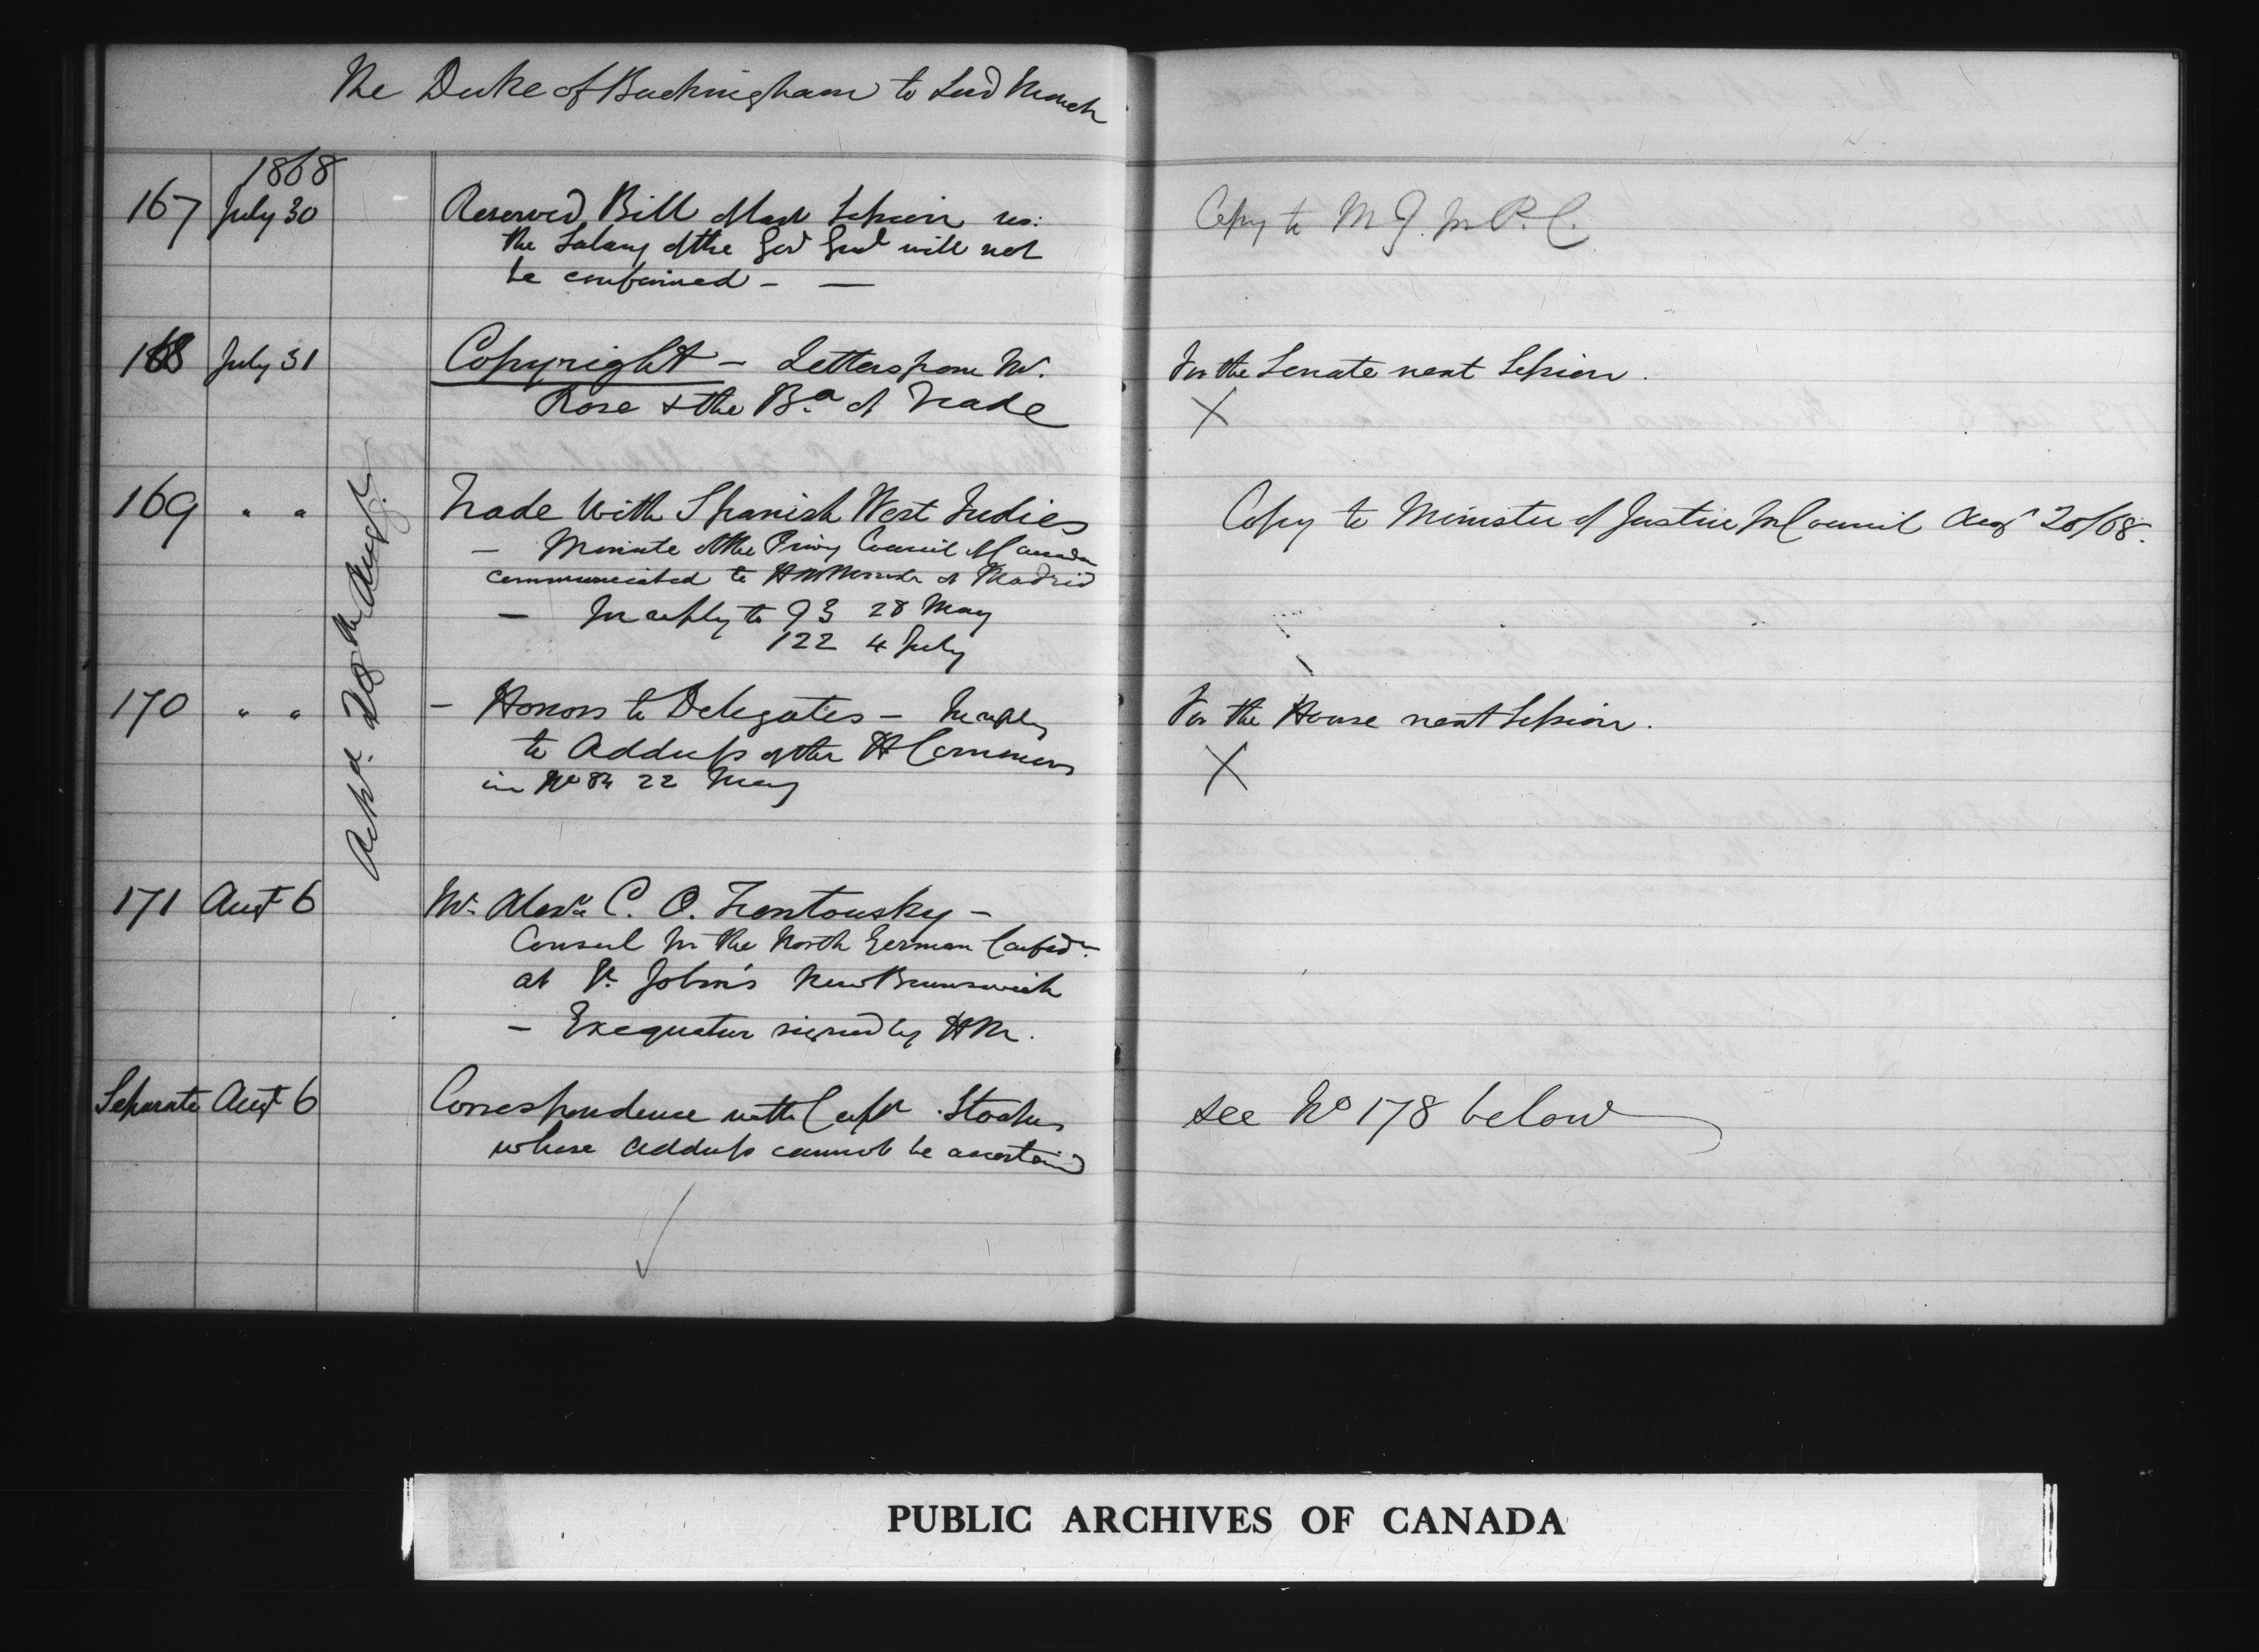 The Duke of Buckingham to Lord Monck
1868
167 July 30 Reserved Bill of last Session res:
the Salary of the Gov Genl will not
be confirmed - —
Copy to M J. for P. C.
168 July 31 Copyright - Letters from Mr.
Rose & the Bd of Trade
For the Senate next Session.
X
169 " " Trade with Spanish West Indies
- Minute of the Privy Council of Canada
communicated to HM at Madrid
- In reply to 93 28 May
122 4 July
Copy to Minister of Justice for Council Augt 20/68.
Ackd. 20th Augt.
170 " " - Honors to Delegates - In reply
to Address of the H Commons
in No 84 22 May
For the House next Session.
X
171 Augt 6 Mr. Alexr C. O. Trentowsky -
Consul for the North German Confedn
at St. John's New Brunswick
- Exequatur signed by HM.
Separate Augt 6 Correspondence with Captn Stoakes
whose address cannot be ascertaind
see No 178 below
PUBLIC ARCHIVES OF CANADA